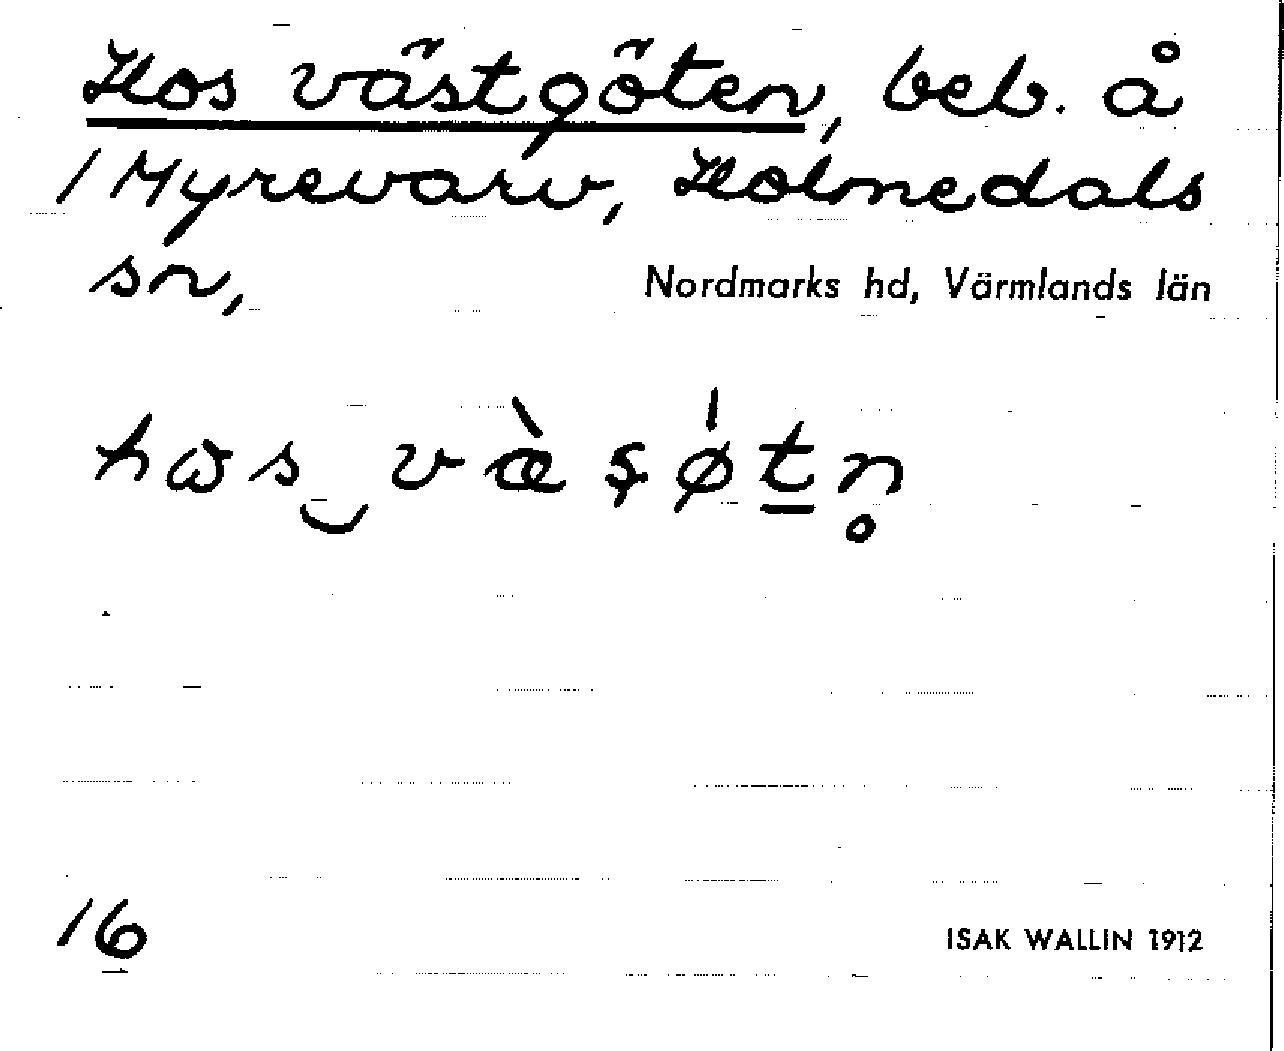 Hos västgöten, beb. å
1 Myrevarv, Holmedals
sn, Nordmarks hd, Värmlands län
16
ISAK WALLIN 1912